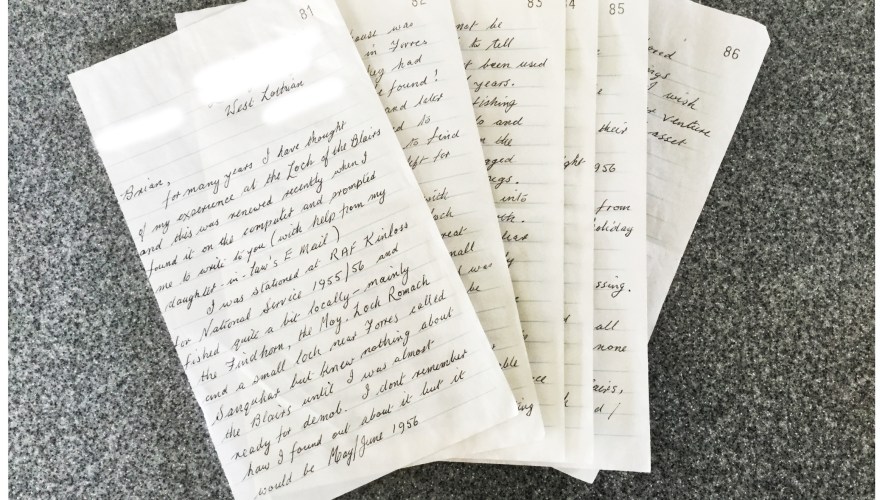 81
West Lothian
Brian,
for many years I have thought
of my experience at the Loch of the Blairs
and this was renewed recently when I
found it on the computer and prompted
me to write to you (with help from my
daughter-in-law's E Mail)
I was stationed at RAF Kinloss
for National Service 1955/56 and
fished quite a bit locally - mainly
the Findhorn, the Moy, Loch Romach
and a small loch near Forres called
Sanquhar but knew nothing about
the Blairs until I was almost
ready for demob. I dont remember
how I found out about it but it
would be May/June 1956
82
house was
in Forres
they had
be found!
and later
to
to find
left for
with
loch
great
small
was
be
83
not be
to tell
been used
years.
fishing
and
the
into
able
ing
4
ght
85
their
1956
from
holiday
ssing.
all
none
airs,
86
ings
I wish
venture
asset